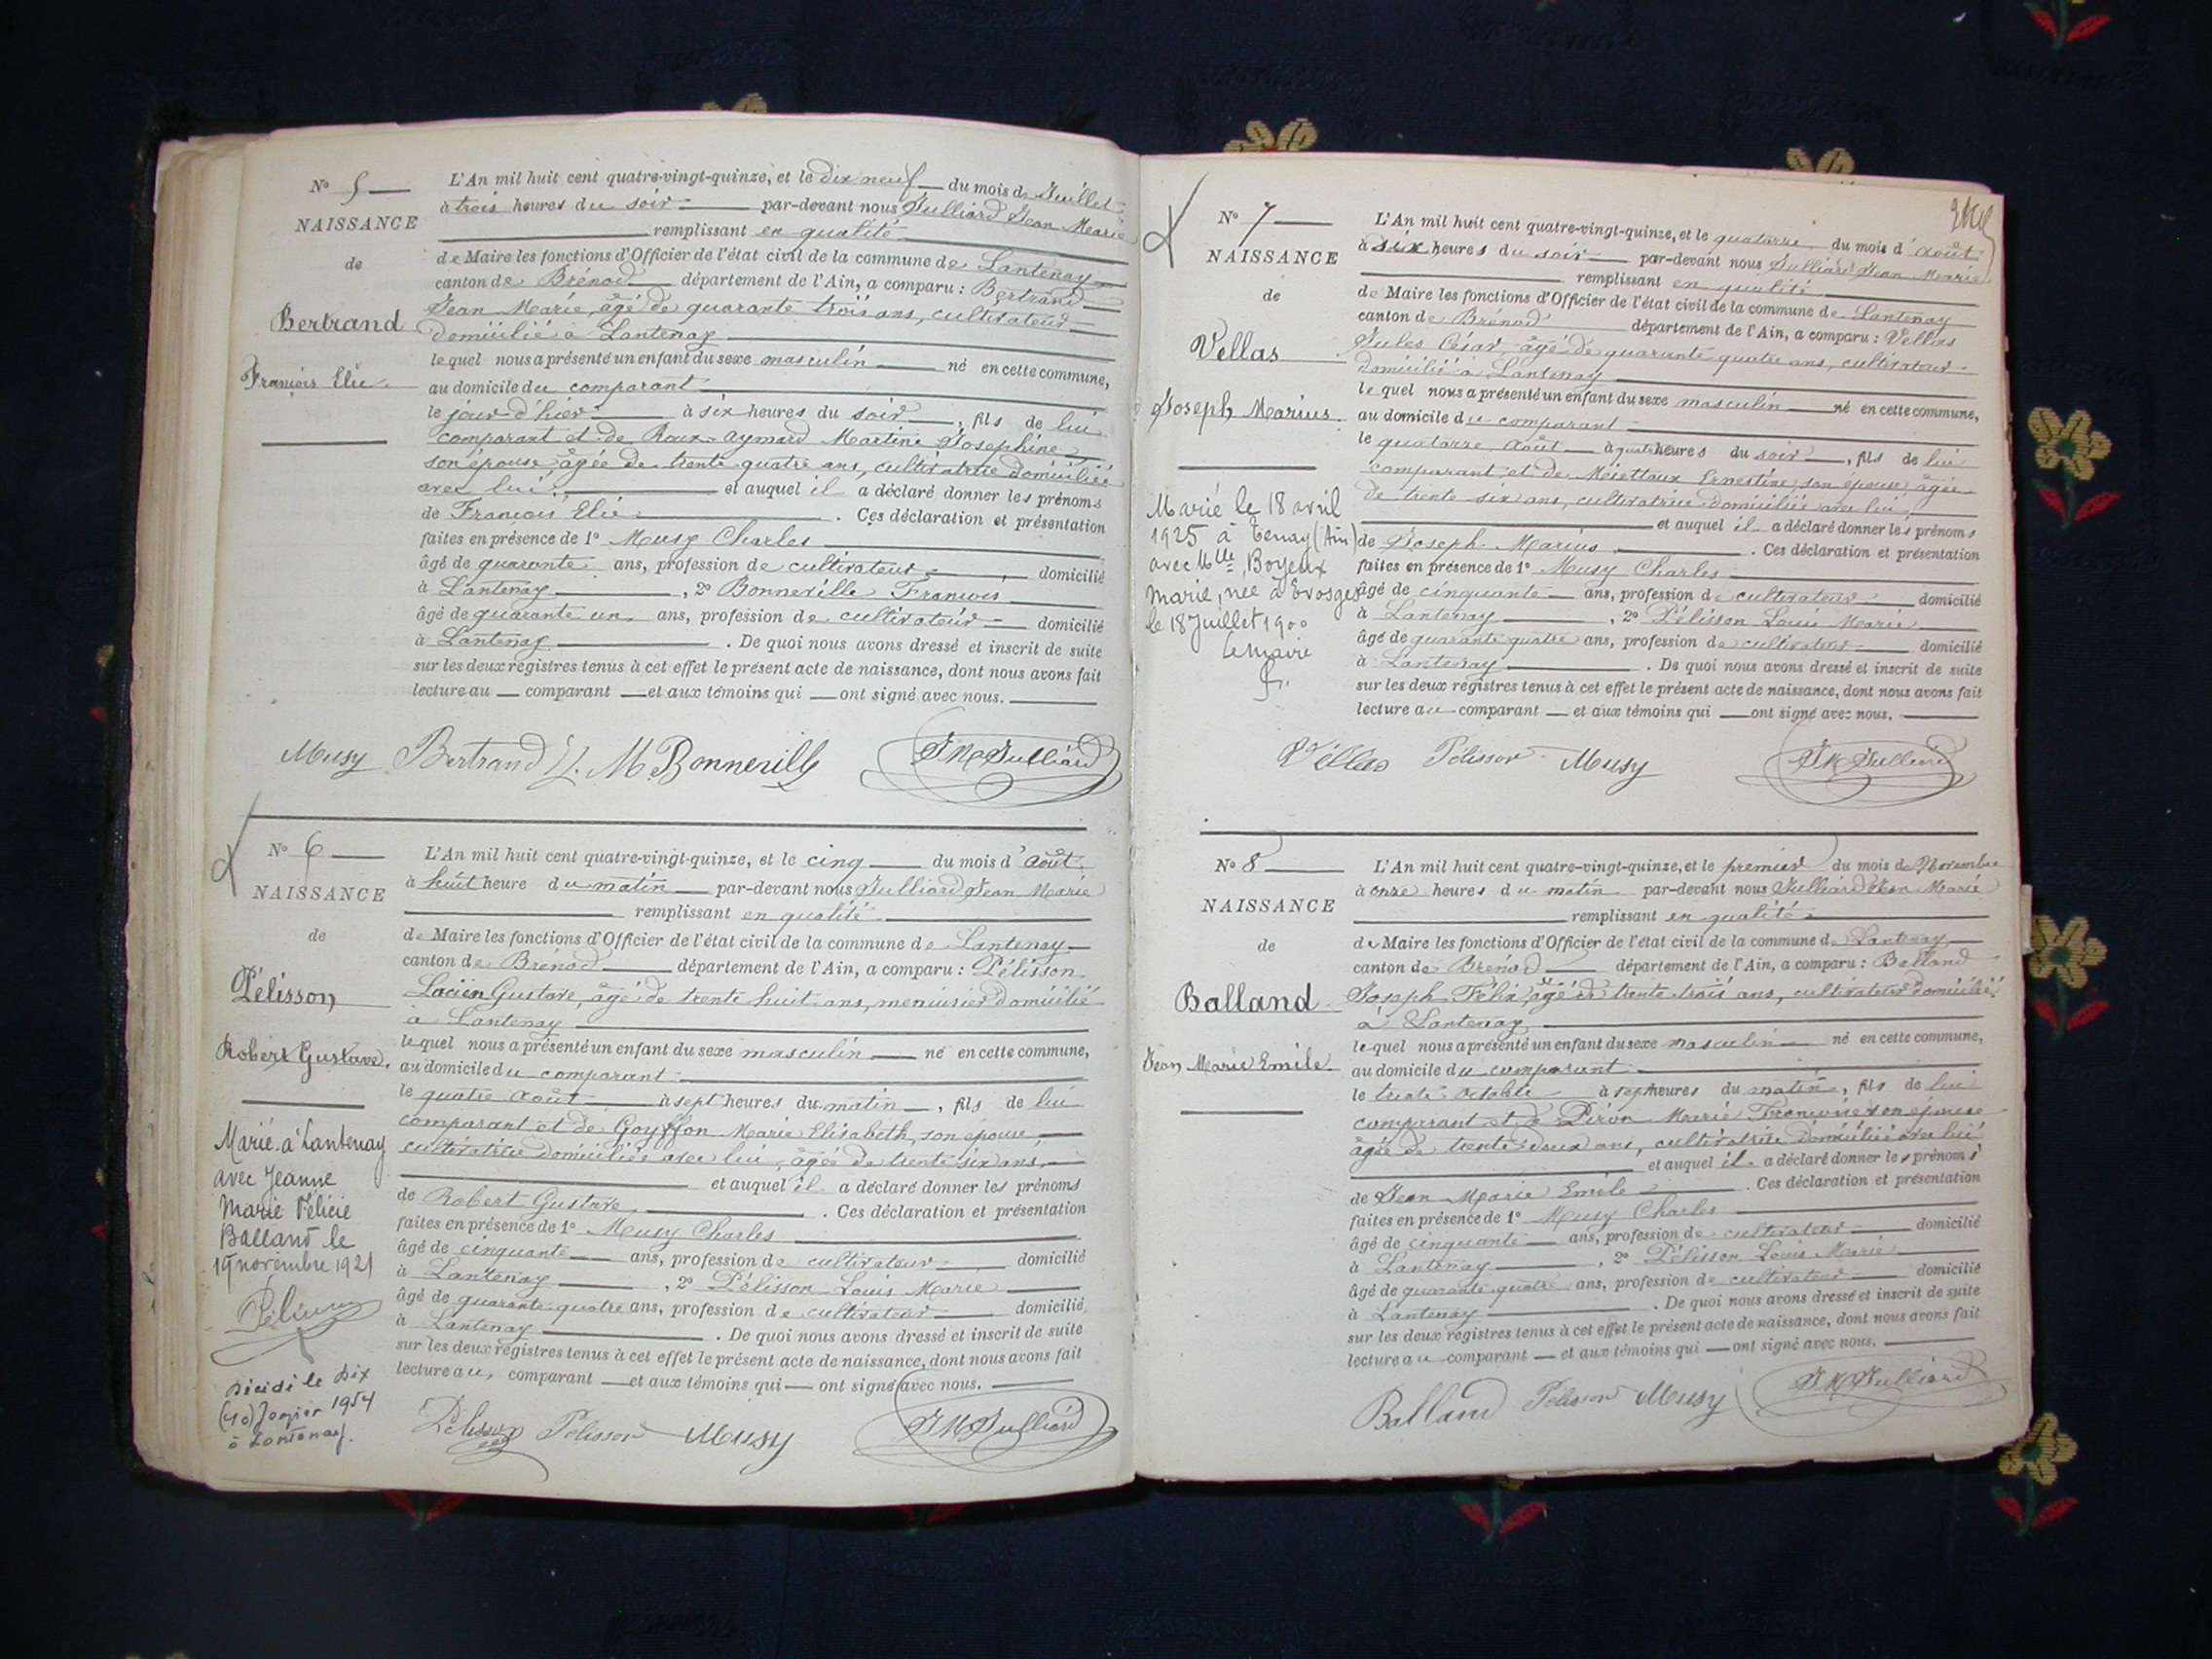 N° 5
NAISSANCE
de
Bertrand
François Elie
L'An mil huit cent quatre-vingt-quinze, et le dix neuf du mois de Juillet
à trois heures du soir par-devant nous Julliard Jean Marie
remplissant en qualité
de Maire les fonctions d'Officier de l'état civil de la commune de Lantenay
canton de Brénod département de l'Ain, a comparu : Bertrand
Jean Marie, âgé de quarante trois ans, cultivateur
domicilié à Lantenay
lequel nous a présenté un enfant du sexe masculin né en cette commune,
au domicile du comparant
le jour d'hier à six heures du soir, fils de lui
comparant et de Roux-Aymard Martine Josephine
son épouse, âgée de trente quatre ans, cultivatrice domiciliée
avec lui, et auquel il a déclaré donner les prénoms
de François Elie. Ces déclaration et présentation
faites en présence de 1° Musy Charles
âgé de quarante ans, profession de cultivateur, domicilié
à Lantenay, 2° Bonneville François
âgé de quarante un ans, profession de cultivateur domicilié
à Lantenay. De quoi nous avons dressé et inscrit de suite
sur les deux registres tenus à cet effet le présent acte de naissance, dont nous avons fait
lecture au comparant et aux témoins qui ont signé avec nous.
Musy Bertrand J. M. Bonneville J M Julliard
N° 6
NAISSANCE
de
Pélisson
Robert Gustave.
Marié à Lantenay
avec Jeanne
Marie Félicie
Balland le
19 novembre 1921
Décédé le dix
(10) Janvier 1954
à Lantenay.
L'An mil huit cent quatre-vingt-quinze, et le cinq du mois d'août
à huit heure du matin par-devant nous Julliard Jean Marie
remplissant en qualité
de Maire les fonctions d'Officier de l'état civil de la commune de Lantenay
canton de Brénod département de l'Ain, a comparu : Pélisson
Lucien Gustave, âgé de trente huit ans, menuisier domicilié
à Lantenay
lequel nous a présenté un enfant du sexe masculin né en cette commune,
au domicile du comparant
le quatre août à sept heures du matin, fils de lui
comparant et de Goyffon Marie Elisabeth, son épouse
cultivatrice domiciliée avec lui, âgée de trente six ans,
et auquel il a déclaré donner les prénoms
de Robert Gustave. Ces déclaration et présentation
faites en présence de 1° Musy Charles
âgé de cinquante ans, profession de cultivateur domicilié
à Lantenay, 2° Pélisson Louis Marie
âgé de quarante quatre ans, profession de cultivateur domicilié
à Lantenay. De quoi nous avons dressé et inscrit de suite
sur les deux registres tenus à cet effet le présent acte de naissance, dont nous avons fait
lecture au, comparant et aux témoins qui ont signé avec nous.
Pelisson Pélisson Musy J M Julliard
N° 7
NAISSANCE
de
Vellas
Joseph Marius.
Marié le 18 avril
1925 à Tenay (Ain)
avec Mlle Boyeux
Marie, née à Evosges
le 18 Juillet 1900
Le maire
L'An mil huit cent quatre-vingt-quinze, et le quatorze du mois d'août
à six heures du soir par-devant nous Julliard Jean Marie
remplissant en qualité
de Maire les fonctions d'Officier de l'état civil de la commune de Lantenay
canton de Brénod département de l'Ain, a comparu : Vellas
Jules César, âgé de quarante quatre ans, cultivateur
domicilié à Lantenay
lequel nous a présenté un enfant du sexe masculin né en cette commune,
au domicile du comparant
le quatorze août à quatre heures du soir, fils de lui
comparant et de Ernestine, son épouse, âgée
de trente six ans, cultivatrice domiciliée avec lui,
et auquel il a déclaré donner les prénoms
de Joseph Marius. Ces déclaration et présentation
faites en présence de 1° Musy Charles
âgé de cinquante ans, profession de cultivateur domicilié
à Lantenay, 2° Pélisson Louis Marie
âgé de quarante quatre ans, profession de cultivateur domicilié
à Lantenay. De quoi nous avons dressé et inscrit de suite
sur les deux registres tenus à cet effet le présent acte de naissance, dont nous avons fait
lecture au comparant et aux témoins qui ont signé avec nous.
Vellas Pélisson Musy J M Julliard
N° 8
NAISSANCE
de
Balland
Jean Marie Emile
L'An mil huit cent quatre-vingt-quinze, et le premier du mois de Novembre
à onze heures du matin par-devant nous Julliard Jean Marie
remplissant en qualité
de Maire les fonctions d'Officier de l'état civil de la commune de Lantenay
canton de Brénod département de l'Ain, a comparu : Balland
Joseph Félix, âgé de trente trois ans, cultivateur domicilié
à Lantenay
lequel nous a présenté un enfant du sexe masculin né en cette commune,
au domicile du comparant
le trente octobre à sept heures du matin, fils de lui
comparant et de Piron Marie Françoise son épouse
âgée de trente deux ans, cultivatrice domiciliée avec lui
et auquel il a déclaré donner les prénoms
de Jean Marie Emile. Ces déclaration et présentation
faites en présence de 1° Musy Charles
âgé de cinquante ans, profession de cultivateur domicilié
à Lantenay, 2° Pélisson Louis Marie
âgé de quarante quatre ans, profession de cultivateur domicilié
à Lantenay. De quoi nous avons dressé et inscrit de suite
sur les deux registres tenus à cet effet le présent acte de naissance, dont nous avons fait
lecture au comparant et aux témoins qui ont signé avec nous.
Balland Pélisson Musy J M Julliard